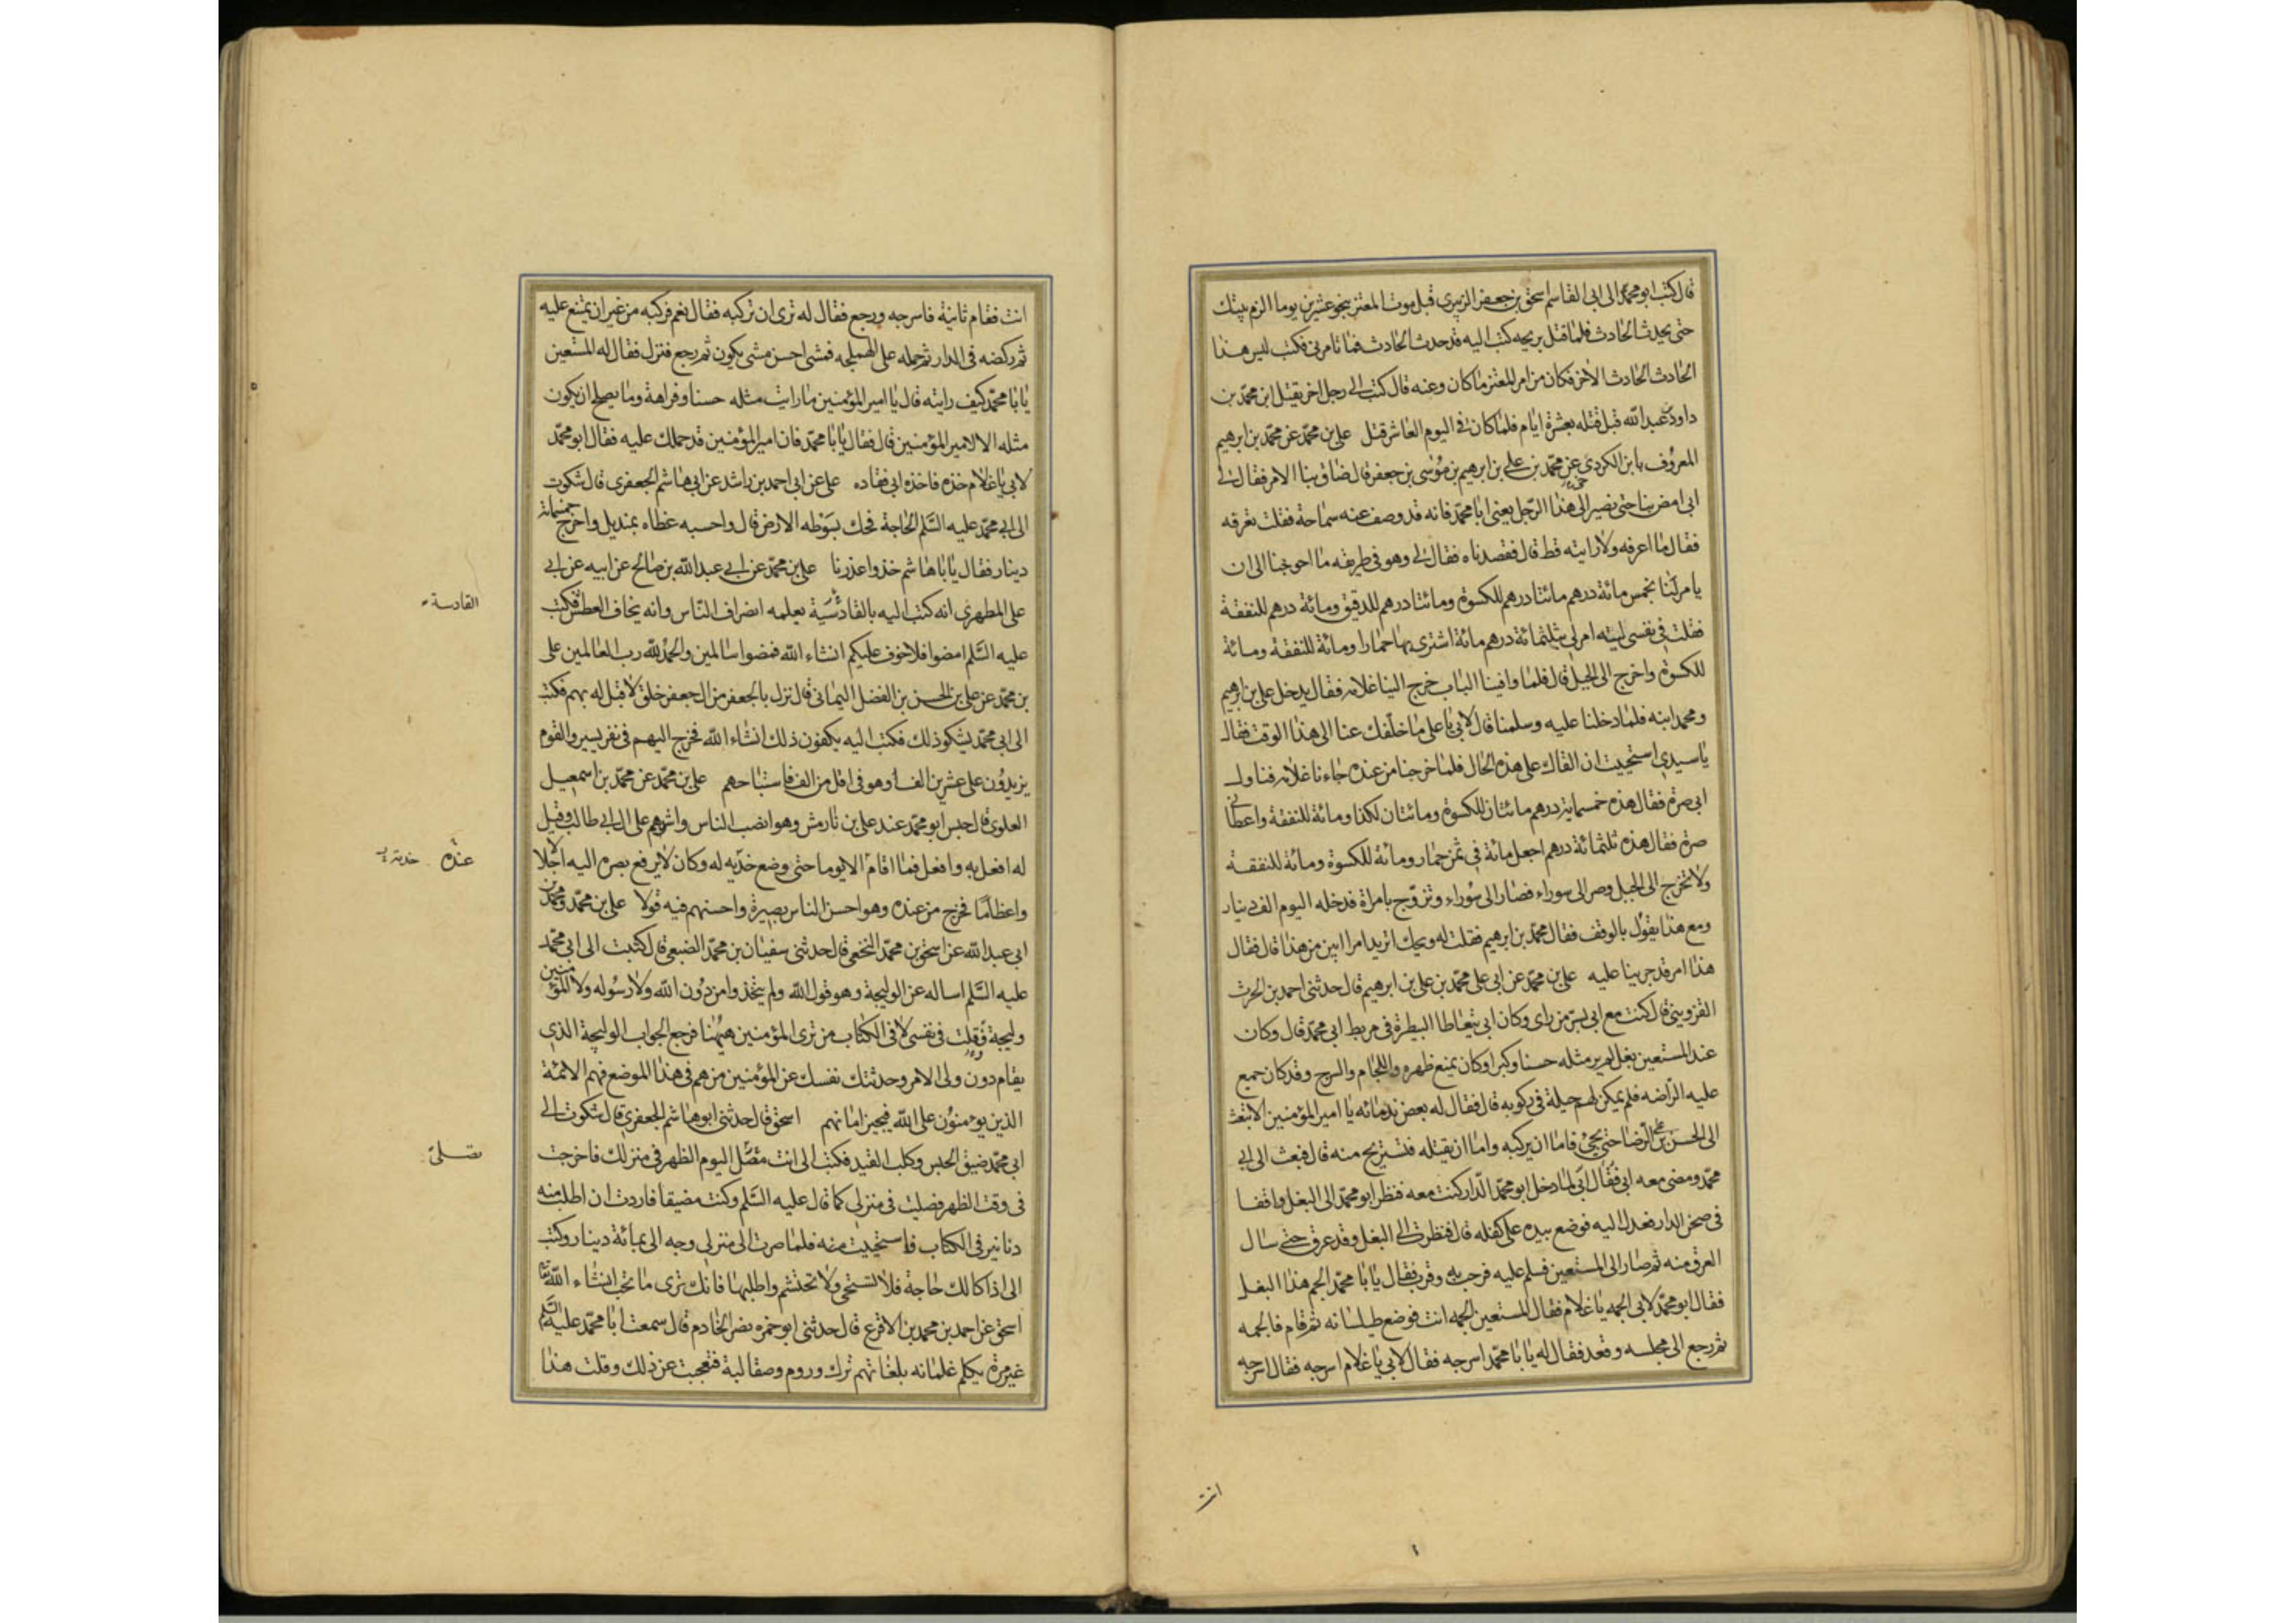 قال كتب ابو محمد الى ابى القاسم اسحق بن جعفر الزبيرى قبل موت المعتز بنحو عشرين يوما الزم بيتك
حتى يحدث الحادث فلما قتل بريحه كتب اليه قد حدث الحادث فما تامرنى فكتب ليس هذا
الحادث الحادث الاخر فكان من امر المعتز ما كان وعنه قال كتب الى رجل اخر يقتل ابن محمد بن
داود عبد الله قبل قتله بعشرة ايام فلما كان فى اليوم العاشر قتل على بن محمد عن محمد بن ابرهيم
المعروف بابن الكردى عن محمد بن على بن ابرهيم بن موسى بن جعفر قال ضاق بنا الامر فقال لى
ابى امض بنا حتى نصير الى هذا الرجل يعنى ابا محمد فانه قد وصف عنه سماحة فقلت تعرفه
فقال ما اعرفه ولا رايته قط قال فقصدناه فقال لى وهو فى طريقه ما احوجنا الى ان
يامر لنا بخمس مائة درهم مائتا درهم للكسوة ومائتا درهم للدقيق ومائة درهم للنفقة
فقلت فى نفسى ليته امر لى بثلثمائة درهم مائة اشترى بها حمارا ومائة للنفقة ومائة
للكسوة واخرج الى الجبل قال فلما وافينا الباب خرج الينا غلامه فقال يدخل على بن ابرهيم
ومحمد ابنه فلما دخلنا عليه وسلمنا قال لابى يا على ما خلفك عنا الى هذا الوقت فقال
يا سيدى استحييت ان القاك على هذه الحال فلما خرجنا من عنده جاءنا غلامه فناول
ابى صرة فقال هذه خمسمائة درهم مائتان للكسوة ومائتان لكذا ومائة للنفقة واعطانى
صرة فقال هذه ثلثمائة درهم اجعل مائة فى ثمن حمار ومائة للكسوة ومائة للنفقة
ولا تخرج الى الجبل وصر الى سوراء فصار الى سوراء وتزوج بامراة فدخله اليوم الف دينار
ومع هذا يقول بالوقف فقال محمد بن ابرهيم فقلت له ويحك اتريد امرا ابين من هذا قال فقال
هذا امر قد جرينا عليه على بن محمد عن ابى على محمد بن على بن ابرهيم قال حدثنى احمد بن الحرث
القزوينى قال كنت مع ابى بسر من راى وكان ابى يتعاطا البيطرة فى مربط ابى محمد قال وكان
عند المستعين بغل لم ير مثله حسنا وكبرا وكان يمنع ظهره واللجام والسرج وقد كان جمع
عليه الراضه فلم يمكن لهم حيلة فى ركوبه قال فقال له بعض ندمائه يا امير المؤمنين الا تبعث
الى الحسن بن على الرضا حتى يجئ فاما ان يركبه واما ان يقتله فتستريح منه قال فبعث الى ابى
محمد ومضى معه ابى فقال ابى لما دخل ابو محمد الدار كنت معه فنظر ابو محمد الى البغل واقفا
فى صحن الدار فعدل اليه فوضع بيده على كفله قال فنظرت الى البغل وقد عرق حتى سال
العرق منه ثم صار الى المستعين فسلم عليه فرحب به وقرب فقال يا با محمد الجم هذا البغل
فقال ابو محمد لابى الجمه يا غلام فقال المستعين الجمه انت فوضع طيلسانه ثم قام فالجمه
ثم رجع الى مجلسه وقعد فقال له يا با محمد اسرجه فقال لابى يا غلام اسرجه فقال اسرجه
انت
انت فقام ثانية فاسرجه ورجع فقال له ترى ان تركبه فقال نعم فركبه من غير ان يمتنع عليه
ثم ركضه فى الدار ثم حمله على الهملجه فمشى احسن مشى يكون ثم رجع فنزل فقال له المستعين
يا با محمد كيف رايته قال يا امير المؤمنين ما رايت مثله حسنا وفراهة وما يصلح ان يكون
مثله الا لامير المؤمنين قال فقال يا با محمد فان امير المؤمنين قد حملك عليه فقال ابو محمد
لابى يا غلام خذه فاخذه ابى فقاده على عن ابى احمد بن راشد عن ابى هاشم الجعفرى قال شكوت
الى ابى محمد عليه السلم الحاجة فحك بسوطه الارض قال واحسبه غطاه بمنديل واخرج خمسمائة
دينار فقال يا با هاشم خذ واعذرنا على بن محمد عن ابى عبد الله بن صالح عن ابيه عن ابى
على المطهرى انه كتب اليه بالقادسية يعلمه انصراف الناس وانه يخاف العطش فكتب
القادسية
عليه السلم امضوا فلا خوف عليكم انشاء الله فمضوا سالمين والحمد لله رب العالمين على
بن محمد عن على بن الحسن بن الفضل اليمانى قال نزل بالجعفر من ال جعفر خلق لا قبل له بهم فكتب
الى ابى محمد يشكو ذلك فكتب اليه يكفون ذلك انشاء الله فخرج اليهم فى نفر يسير والقوم
يزيدون على عشرين الفا وهو فى اقل من الف فاستباحهم على بن محمد عن محمد بن اسمعيل
العلوى قال حبس ابو محمد عند على بن نارمش وهو انصب الناس واشدهم على ال ابى طالب وقيل
له افعل به وافعل فما اقام الا يوما حتى وضع خديه له وكان لا يرفع بصره اليه اجلالا
عنده
واعظاما فخرج من عنده وهو احسن الناس بصيرة واحسنهم فيه قولا على بن محمد ومحمد بن
ابى عبد الله عن اسحق بن محمد النخعى قال حدثنى سفيان بن محمد الضبعى قال كتبت الى ابى محمد
عليه السلم اساله عن الوليجة وهو قول الله ولم يتخذوا من دون الله ولا رسوله ولا المؤمنين
وليجة فقلت فى نفسى لا فى الكتاب من ترى المؤمنين هيهنا فرجع الجواب الوليجة الذى
يقام دون ولى الامر وحدثتك نفسك عن المؤمنين من هم فى هذا الموضع فهم الائمة
الذين يؤمنون على الله فيجيز امانهم اسحق قال حدثنى ابو هاشم الجعفرى قال شكوت الى
ابى محمد ضيق الحبس وكلب القيد فكتب الى انت مصل اليوم الظهر فى منزلك فاخرجت
تصلى
فى وقت الظهر فصليت فى منزلى كما قال عليه السلم وكنت مضيقا فاردت ان اطلب منه
دنانير فى الكتاب فاستحييت منه فلما صرت الى منزلى وجه الى بمائة دينار وكتب
الى اذا كا لك حاجة فلا تستحى ولا تحتشم واطلبها فانك ترى ما تحب انشاء الله تعا
اسحق عن احمد بن محمد بن الاقرع قال حدثنى ابو حمزه نصر الخادم قال سمعت ابا محمد عليه السلم
غير مرة يكلم غلمانه بلغاتهم ترك وروم وصقالبة فتعجبت عن ذلك وقلت هذا